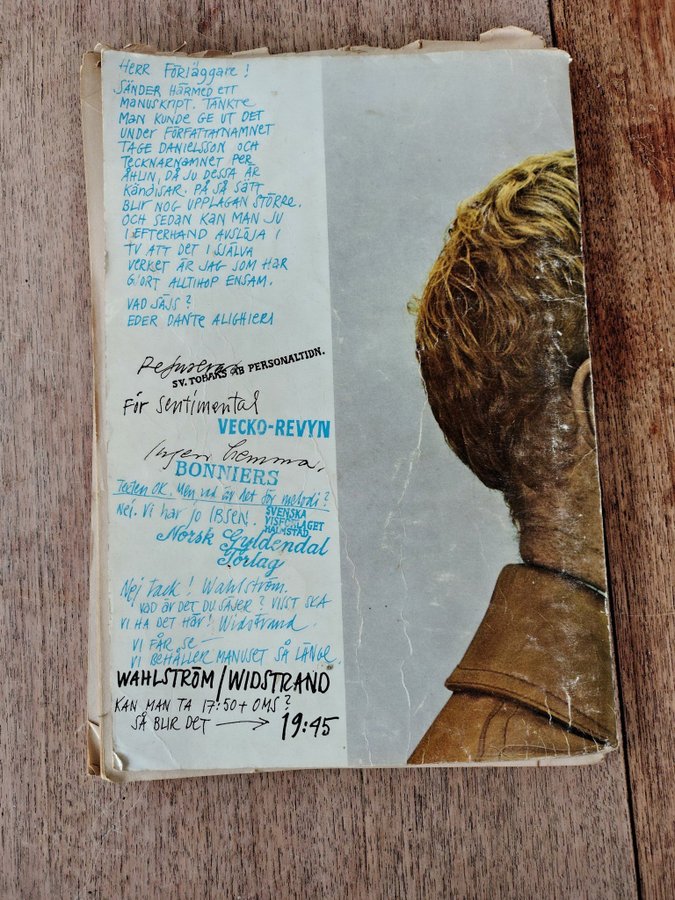 HERR FÖRLÄGGARE!
SÄNDER HÄRMED ETT
MANUSKRIPT. TÄNKTE
MAN KUNDE GE UT DET
UNDER FÖRFATTARNAMNET
TAGE DANIELSSON OCH
TECKNARNAMNET PER
ÅHLIN, DÅ JU DESSA ÄR
KÄNDISAR. PÅ SÅ SÄTT
BLIR NOG UPPLAGAN STÖRRE.
OCH SEDAN KAN MAN JU
I EFTERHAND AVSLÖJA I
TV ATT DET I SJÄLVA
VERKET ÄR JAG SOM HAR
GJORT ALLTIHOP ENSAM.
VAD SÄJS?
EDER DANTE ALIGHIERI
Refuseras
SV. TOBAKS AB PERSONALTIDN.
För sentimental
VECKO-REVYN
Ingen hemma.
BONNIERS
Texten OK. Men vad är det för melodi?
SVENSKA
VISFÖRLAGET
HALMSTAD
Nej. Vi har jo IBSEN.
Norsk Gyldendal
Förlag
Nej tack! Wahlström.
VAD ÄR DET DU SÄJER? VISST SKA
VI HA DET HÄR! Widstrand.
VI FÅR SE —
VI BEHÅLLER MANUSET SÅ LÄNGE.
WAHLSTRÖM/WIDSTRAND
KAN MAN TA 17:50 + OMS?
SÅ BLIR DET → 19:45